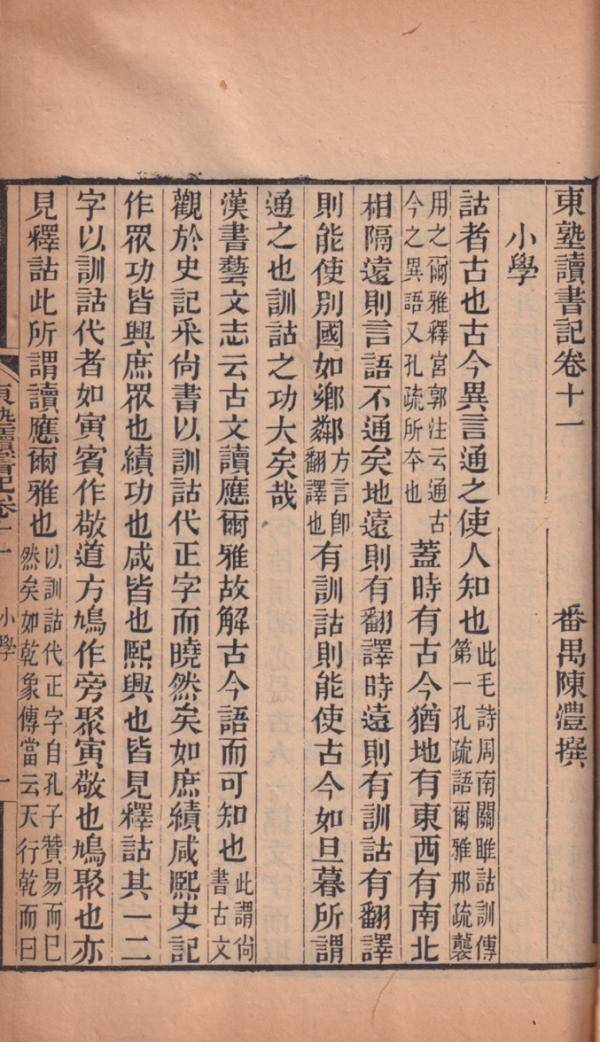 東塾讀書記卷十一 番禺陳澧撰
小學
詁者古也古今異言通之使人知也此毛詩周南關雎詁訓傳
第一孔疏語爾雅邢疏襲
用之爾雅釋宮郭注云通古
今之異語又孔疏所本也蓋時有古今猶地有東西有南北
相隔遠則言語不通矣地遠則有翻譯時遠則有訓詁有翻譯
則能使別國如鄉鄰方言卽
翻譯也有訓詁則能使古今如旦暮所謂
通之也訓詁之功大矣哉
漢書藝文志云古文讀應爾雅故解古今語而可知也此謂尙
書古文
觀於史記采尙書以訓詁代正字而曉然矣如庶績咸熙史記
作眾功皆興庶眾也績功也咸皆也熙興也皆見釋詁其一二
字以訓詁代者如寅賓作敬道方鳩作旁聚寅敬也鳩聚也亦
見釋詁此所謂讀應爾雅也以訓詁代正字自孔子贊易而已
然矣如乾象傳當云天行乾而曰
東塾讀書記卷十一 小學 一